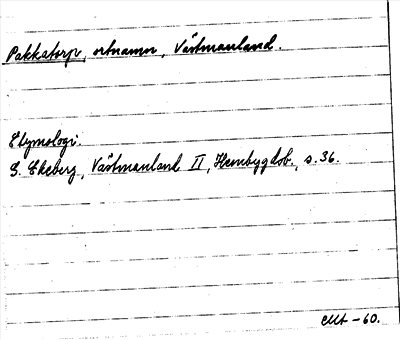 Pakkatorp, ortnamn, Västmanland.
Etymologi.
G. Ekeberg, Västmanland II, Hembygdsb., s. 36.
-60.